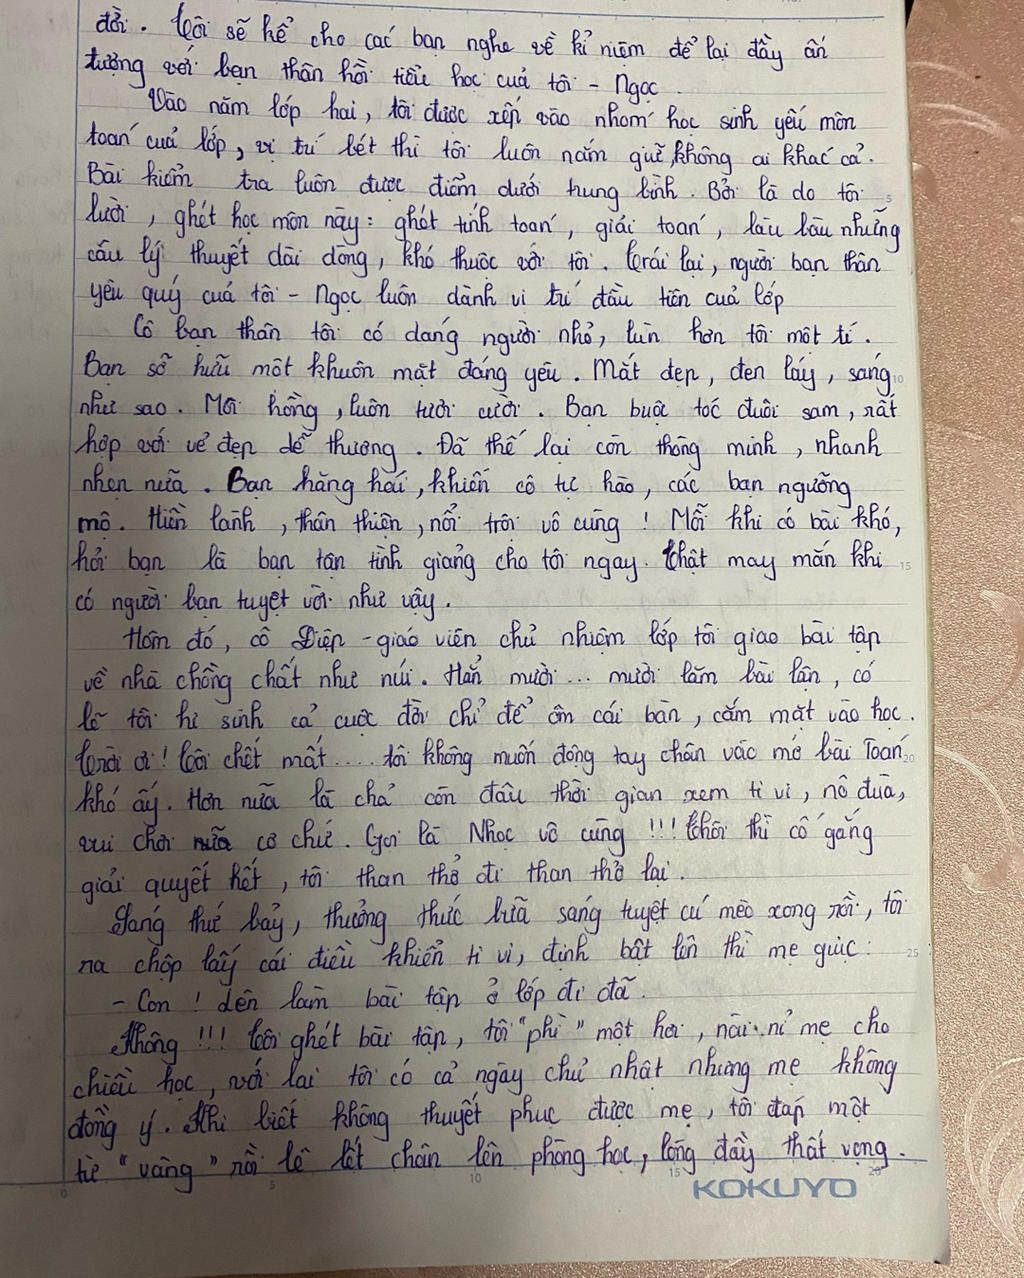 đời. Tôi sẽ kể cho các bạn nghe về kỉ niệm để lại đầy ấn
tượng với bạn thân hồi tiểu học của tôi - Ngọc.
Vào năm lớp hai, tôi được xếp vào nhóm học sinh yếu môn
toán của lớp, vị trí bét thì tôi luôn nắm giữ, không ai khác cả.
Bài kiểm tra luôn được điểm dưới trung bình. Bởi là do tôi
lười, ghét học môn này: ghét tính toán, giải toán, làu bàu những
câu lý thuyết dài dòng, khó thuộc với tôi. Trái lại, người bạn thân
yêu quý của tôi - Ngọc luôn dành vị trí đầu tiên của lớp
Cô bạn thân tôi có dáng người nhỏ, lùn hơn tôi một tí.
Bạn sở hữu một khuôn mặt đáng yêu. Mắt đẹp, đen láy, sáng
như sao. Môi hồng, luôn tươi cười. Bạn buộc tóc đuôi sam, rất
hợp với vẻ đẹp dễ thương. Đã thế lại còn thông minh, nhanh
nhẹn nữa. Bạn hăng hái, khiến cô tự hào, các bạn ngưỡng
mộ. Hiền lành, thân thiện, nổi trội vô cùng! Mỗi khi có bài khó,
hỏi bạn là bạn tận tình giảng cho tôi ngay. Thật may mắn khi
có người bạn tuyệt vời như vậy.
Hôm đó, cô Diệp - giáo viên chủ nhiệm lớp tôi giao bài tập
về nhà chồng chất như núi. Hẳn mười... mười lăm bài lận, có
lẽ tôi hi sinh cả cuộc đời chỉ để ôm cái bàn, cắm mặt vào học.
Trời ơi! Tôi chết mất.... tôi không muốn động tay chân vào mớ bài Toán
khó ấy. Hơn nữa là chả còn đâu thời gian xem ti vi, nô đùa,
vui chơi cơ chứ. Gọi là Nhọc vô cùng!!! Thôi thì cố gắng
giải quyết hết, tôi than thở đi than thở lại.
Sáng thứ bảy, thưởng thức bữa sáng tuyệt cú mèo xong rồi, tôi
ra chộp lấy cái điều khiển ti vi, định bật lên thì mẹ giục:
- Con! lên làm bài tập ở lớp đi đã.
Không!!! Tôi ghét bài tập, tôi "phì" một hơi, nài nỉ mẹ cho
chiều học, với lại tôi có cả ngày chủ nhật nhưng mẹ không
đồng ý. Khi biết không thuyết phục được mẹ, tôi đáp một
từ "vâng" rồi lê lết chân lên phòng học, lòng đầy thất vọng.
5
10
15
20
25
0 5 10 15 20
KOKUYO